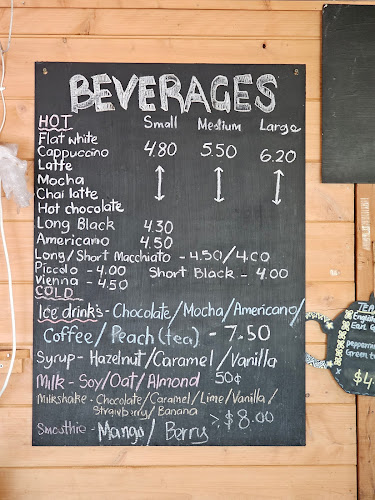 BEVERAGES
HOT Small Medium Large
Flat white
Cappuccino 4.80 5.50 6.20
Latte
Mocha
Chai latte
Hot chocolate
Long Black 4.30
Americano 4.50
Long/Short Macchiato - 4.50/4.00
Piccolo - 4.00 Short Black - 4.00
Vienna - 4.50
COLD
Ice drinks - Chocolate/Mocha/Americano/
Coffee/Peach (tea) - 7.50
Syrup - Hazelnut/Caramel/Vanilla
Milk - Soy/Oat/Almond 50¢
Milkshake - Chocolate/Caramel/Lime/Vanilla/
Strawberry/Banana
Smoothie - Mango/Berry > $8.00
TEA
English
Earl G
Peppermin
Green t
$4